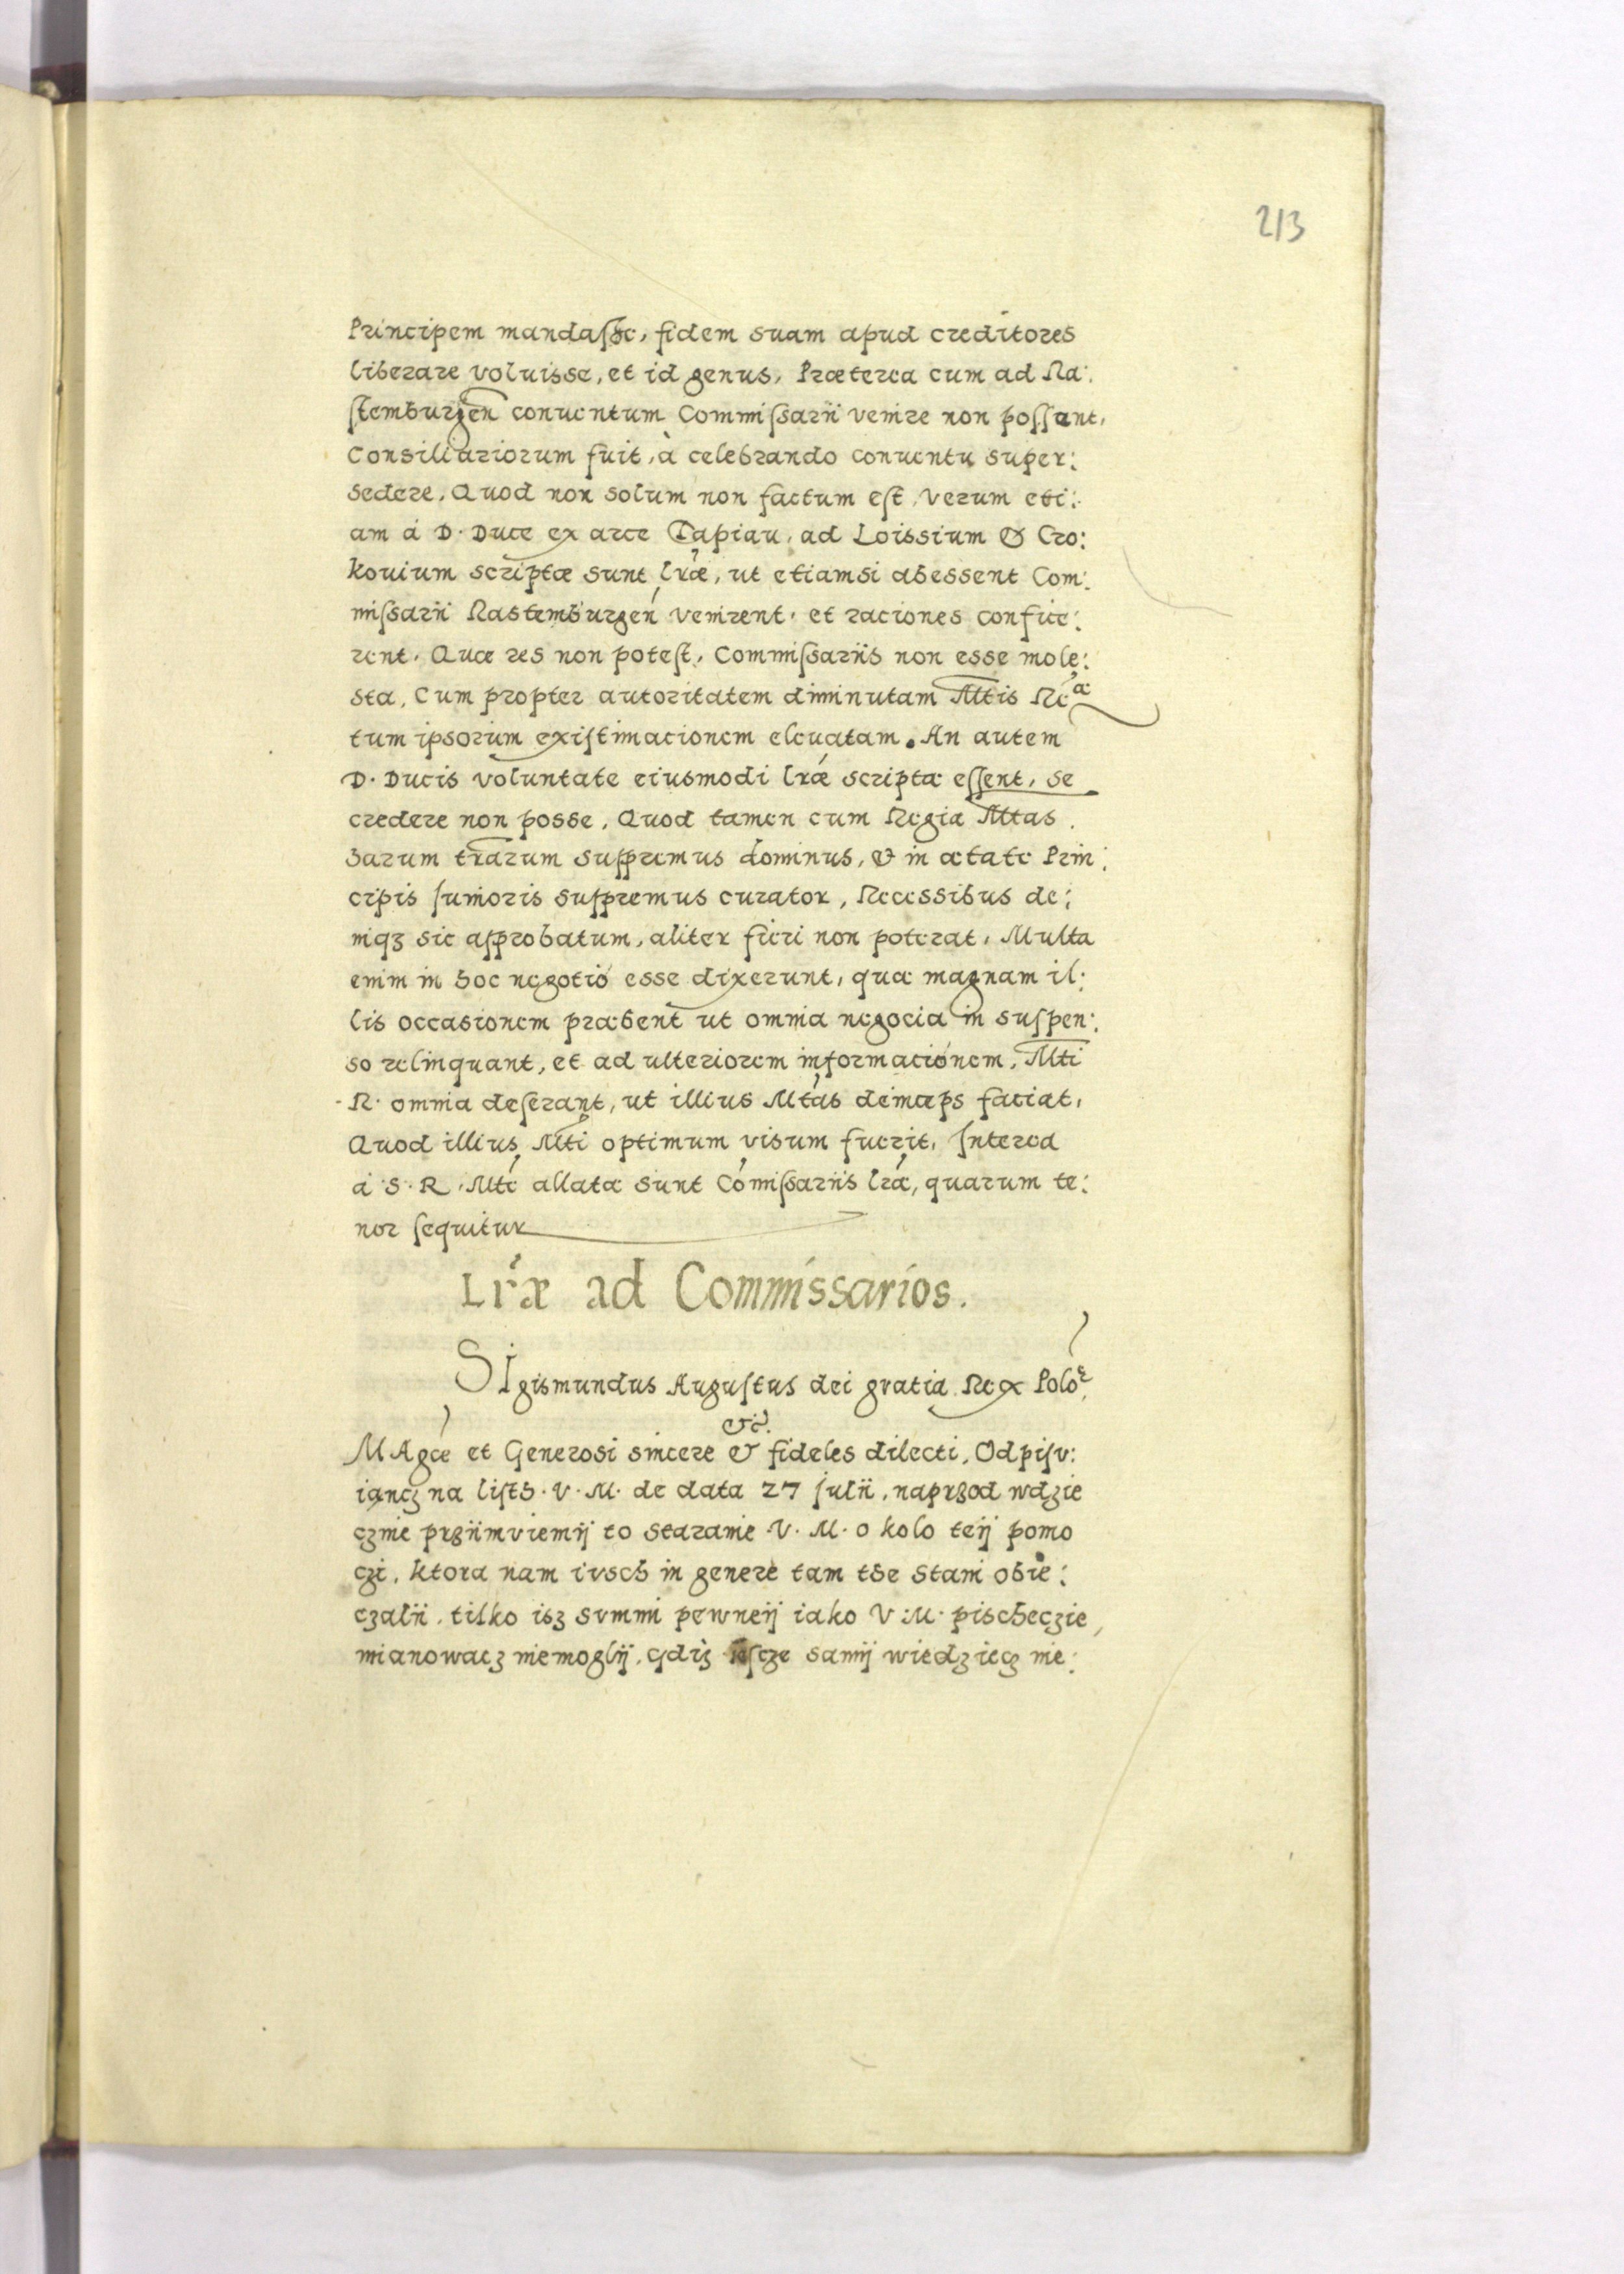 213
Principem mandasse, fidem suam apud creditores
liberare voluisse, et id genus, Præterea cum ad Ra:
stemburgen̄ conuentum Commissarii venire non possent,
Consiliariorum fuit, à celebrando conuentu super:
sedere. Quod non solum non factum est, verum eti:
am á D. Duce ex arce Tapiau, ad Loissium & Cro:
kouium scriptæ sunt lr̃æ, ut etiamsi abessent Com:
missarii Rastemburgen̄ venirent, et raciones confice:
rent. Quæ res non potest, Commissariis non esse mole:
sta, Cum propter autoritatem diminutam Mtis Reæ
tum ipsorum existimacionem eleuatam. An autem
D. Ducis voluntate eiusmodi lr̃æ scriptæ essent, se
credere non posse. Quod tamen cum Regia Mtas
harum tr̄arum suppremus dominus, & in ætate Prin:
cipis Junioris suppremus curator, Recessibus de:
niqз sic approbatum, aliter fieri non poterat, Multa
enim in hoc negotió esse dixerunt, quæ magnam il:
lis occasionem præbent ut omnia negocia in suspen:
so relinquant, et ad ulteriorem informacionem, Mti
R. omnia deferant, ut illius Mtas deinceps faciat,
Quod illius Mti optimum visum fuerit, Interea
á S. R. Mte allatæ sunt Com̃issariis lr̃æ, quarum te:
nor sequitur
Lr̃æ ad Commissarios.
SIgismundus Augustus dei gratia Rex Poloẽ
&c̃.
MAgce et Generosi sincere & fideles dilecti, Odpisv:
iancz na listh. V. M. de data 27 Julii, naprzod wdzie
cznie prziimviemÿ to staranie V. M. o kolo teÿ pomo
czi, ktora nam ivsch in genere tam the stani obie:
czalii, tilko isz svmmi pewneÿ iako V. M. pischeczie
mianowacz niemoglÿ, gdiz iescze samÿ wiedziecz nie: